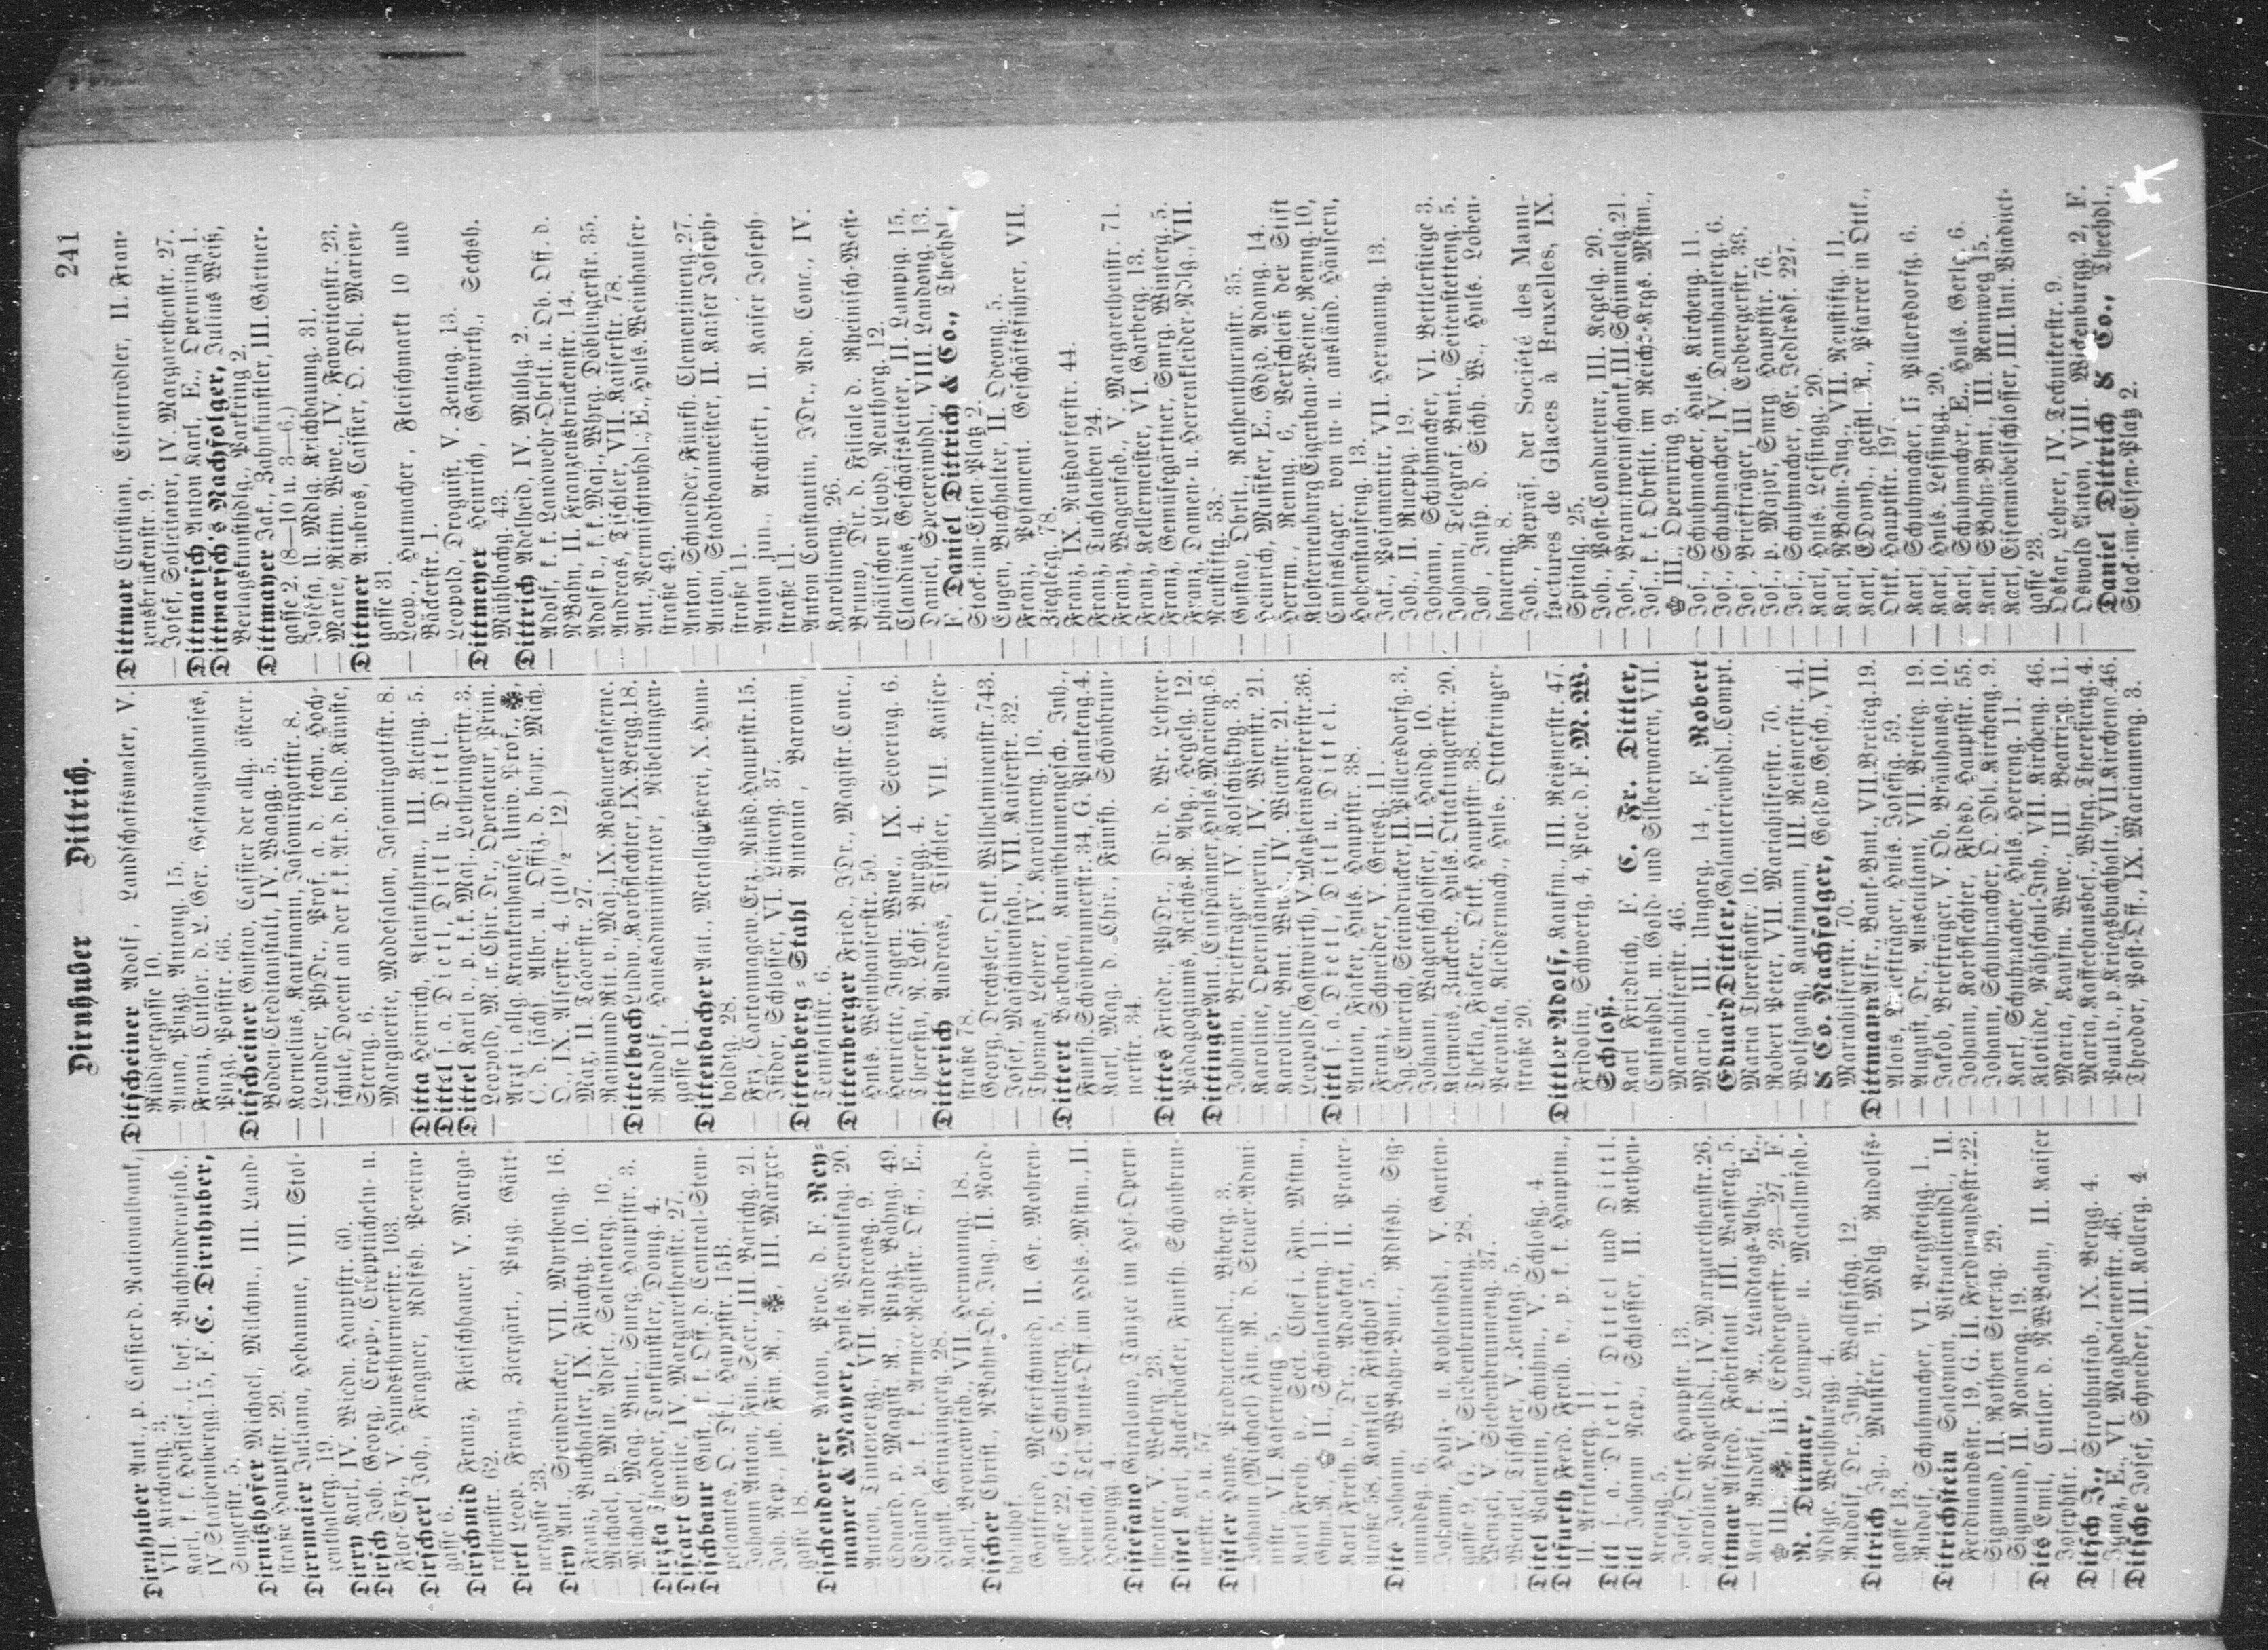 Dirnhuber — Dittrich.
241
Dirnhuber Ant., p. Cassier d. Nationalbank,
VII. Kircheng. 3.
— Karl, k. k. Hoflief., l. bef. Buchbinderwfab.,
IV Starhembergg. 15, F. C. Dirnhuber,
Singerstr. 5.
Dirnitzhofer Michael, Milchm., III. Land-
straße Hauptstr. 29.
Dirrmaier Juliana, Hebamme, VIII. Stol-
zenthalerg. 19.
Dirry Karl, IV. Wiedn. Hauptstr. 60.
Dirsch Joh. Georg, Crepp., Crepptücheln- u.
Flor-Erz., V. Hundsthurmerstr. 103.
Dirscherl Joh., Fragner, Rdlfsh. Pereira-
gasse 6.
Dirschmid Franz, Fleischhauer, V. Marga-
rethenstr. 62.
Dirtl Leop. Franz, Ziergärt., Pnzg. Gärt-
nergasse 23.
Diry Ant., Steindrucker, VII. Myrtheng. 16.
— Franz, Buchhalter, IX. Fluchtg. 10.
— Michael, p. Min. Adjct., Salvatorg. 10.
— Michael, Mag. Bmt., Smrg. Hauptstr. 3.
Dirzka Theodor, Tonkünstler, Domg. 4.
Discart Emilie, IV. Margarethenstr. 27.
Dischbaur Gust., k. k. Off. d. Central-Stem-
pelamtes, O. Dbl. Hauptstr. 15B.
— Johann Anton, Fin. Secr., III Barichg. 21.
— Joh. Nep., jub. Fin. R., ❋ III. Marxer-
gasse 18.
Dischendorfer Anton, Proc. d. F. Ney-
mayer & Mayer, Hnls. Veronikag. 20.
— Anton, Intenerzg., VII. Andreasg. 9.
— Eduard, p. Magist. R., Pnzg. Bahng. 49.
— Eduard, p. k. k. Armee-Registr. Off., E.,
Hnls. Grinzingerg. 28.
— Karl, Broncewfab., VII. Hermanng. 18.
Discher Christ., NBahn-Ob. Ing., II. Nord-
bahnhof.
— Gottfried, Messerschmied, II. Gr. Mohren-
gasse 22, G. Schulterg. 5.
— Heinrich, Tel. Amts-Off. im Hdls.-Mstm., II.
Hedwigg. 4.
Distefano Gralomo, Tänzer im Hof-Opern-
theater, V. Wehrg. 23.
Distel Karl, Zuckerbäcker, Fünfh. Schönbrun-
nerstr. 5 u. 57.
Distler Hans, Productenhdl., Biberg. 3.
— Johann (Michael) Fin. R. d. Steuer-Admi-
nistr., VI. Kaserneng. 5.
— Karl Freih. v., Sect. Chef i. Fin. Mstm.,
Ghm R., III. Schönlaterng. 11.
— Karl Freih. v., Dr., Advokat, II. Prater-
straße 58, Kanzlei Fischhof 5.
Dité Johann, WBahn-Bmt., Rdlfsh. Sig-
mundsg. 6.
— Johann, Holz- u. Kohlenhdl., V. Garten-
gasse 9, G. V. Siebenbrunneng. 28.
— Wenzel, V. Siebenbrunneng. 37.
— Wenzel, Tischler, V. Zentag. 5.
Ditel Valentin, Schuhm., V. Schloßg. 4.
Ditfurth Ferd. Freih. v., p. k. k. Hauptm.,
II. Afrikanerg. 11.
Ditl s. a. Dietl, Dittel und Dittl.
Ditl Johann Nep., Schlosser, II. Rothen-
kreuzg. 5.
— Josef, Ottk. Hauptstr. 13.
— Karoline, Vogelhdl., IV. Margarethenstr. 26.
Ditmar Alfred, Fabrikant III. Wasserg. 5.
— Karl Rudolf, k. R., Landtags-Abg., E.,
III. ❋, III. Erdbergerstr. 23—27, F.
R. Ditmar, Lampen- u. Metallwfab.-
Ndlge. Weihburgg. 4.
— Rudolf, Dr., Ing., Wallfischg. 12.
Ditrich Ig., Musiker, U. Mdlg. Rudolfs-
gasse 13.
— Rudolf, Schuhmacher, VI. Bergsteigg. 1.
Ditrichstein Salomon, Viktualienhdl., II.
Ferdinandsstr. 19, G. II. Ferdinandsstr. 22.
— Sigmund, II. Rothen Sterng. 29.
— Sigmund, II. Novarag. 19.
Dits Emil, Contor. d. NWBahn, II. Kaiser
Josephstr. 1.
Ditsch J., Strohhutfab., IX. Bergg. 4.
— Ignaz, E., VI. Magdalenenstr. 46.
Ditsche Josef, Schneider, III. Kollerg. 4
Ditscheiner Adolf, Landschaftsmaler, V.
Rüdigergasse 10.
— Anna, Pnzg. Antong. 15.
— Franz, Contor. d. L. Ger. Gefangenhauses,
Pnzg. Poststr. 66.
Ditscheiner Gustav, Cassier der allg. österr.
Boden-Creditanstalt, IV. Waagg. 5.
— Kornelius, Kaufmann, Jasomirgottstr. 8.
— Leander, PhDr., Prof. a. d. techn. Hoch-
schule, Docent an der k. k. Ak. d. bild. Künste,
Sterng. 6.
— Marguerite, Modesalon, Jasomirgottstr. 8.
Ditta Heinrich, Kleinfuhrm., III. Kleing. 5.
Dittel s. a. Dietl, Ditl u. Dittl.
Dittel Karl v., p. k. k. Maj., Lothringerstr. 3.
— Leopold, M. u. Chir. Dr., Operateur, Prim.
Arzt i. allg. Krankenhause, Univ. Prof., ❋,
C. d. sächs. Albr. u. Offiz. d. bayr. Mich.
O., IX. Alserstr. 4. (10½—12.)
— Max, II. Taborstr. 27.
— Raimund Rit. v., Maj., IX. Roßauerkaserne.
Dittelbach Ludw., Korbflechter, IX. Bergg. 18.
— Rudolf, Hausadministrator, Nibelungen-
gasse 11.
Dittenbacher Ant., Metallgießerei, X. Hum-
boldtg. 28.
— Frz., Cartonnagew. Erz., Nußd. Hauptstr. 15.
— Isidor, Schlosser, VI. Linieng. 37.
Dittenberg-Stahl Antonia, Baronin,
Teinfaltstr. 6.
Dittenberger Fried., JDr., Magistr. Conc.,
Hnls. Weinhauserstr. 50.
— Henriette, Ingen. Wwe., IX. Severing. 6.
— Theresia, N. Lchf. Burgg. 4.
Ditterich Andreas, Tischler, VII. Kaiser-
straße 78.
— Georg, Drechsler, Ottk. Wilhelminenstr. 743.
— Josef, Maschinenfab., VII. Kaiserstr. 32.
— Thomas, Lehrer, IV. Karolineng. 10.
Dittert Barbara, Kunstblumengesch. Inh.,
Fünfh. Schönbrunnerstr. 34, G. Plankeng. 4.
— Karl, Mag. d. Chir., Fünfh. Schönbrun-
nerstr. 34.
Dittes Friedr., PhDr., Dir. d. Wr. Lehrer-
Pädagogiums, Reichs-R. Abg., Hegelg. 12.
Dittinger Ant., Einspänner, Hnls. Marieng. 6.
— Johann, Briefträger, IV. Kolschitzkyg. 3.
— Karoline, Opernsängerin, IV. Wienstr. 21.
— Karoline, Bmt. W., IV. Wienstr. 21.
— Leopold, Gastwirth, V. Matzleinsdorferstr. 36.
Dittl s. a. Dietl, Ditl u. Dittel.
— Anton, Fiaker, Hnls. Hauptstr. 38.
— Franz, Schneider, V. Griesg. 11.
— Ig. Emerich, Steindrucker, II. Pillersdorfg. 3.
— Johann, Wagenschlosser, II. Haidg. 10.
— Klemens, Zuckerb., Hnls. Ottakringerstr. 20.
— Thekla, Fiaker., Ottk. Hauptstr. 38.
— Veronika, Kleidermach., Hnls. Ottakringer-
straße 20.
Dittler Adolf, Kaufm., III. Reisnerstr. 47.
— Fridolin, Schwertg. 4, Proc. d. F. M. W.
Schloß.
— Karl Friedrich, F. C. Fr. Dittler,
Cmsnshdl. m. Gold- und Silberwaren, VII.
Mariahilferstr. 46.
— Maria, III. Ungarg. 14, F. Robert
Eduard Dittler, Galanteriewhdl., Compt.
Maria Theresiastr. 10.
— Robert Peter, VII. Mariahilferstr. 70.
— Wolfgang, Kaufmann, III. Reisnerstr. 41.
— & Co. Nachfolger, Goldw. Gesch., VII.
Mariahilferstr. 70.
Dittmann Alfr., Bank-Bmt., VII. Breiteg. 19.
— Alois, Briefträger, Hnls. Josefig. 59.
— August, Dr., Auscultant, VII. Breiteg. 19.
— Jakob, Briefträger, V. Ob. Bräuhausg. 10.
— Johann, Korbflechter, Fldsd. Hauptstr. 55.
— Johann, Schuhmacher, O. Dbl. Kircheng. 9.
— Karl, Schuhmacher, Hnls. Herreng. 11.
— Klotilde, Nähschul-Inh., VII. Kircheng. 46.
— Maria, Kaufm. Wwe., III. Beatrixg. 11.
— Maria, Kaffeehausbes., Whrg. Theresieng. 4.
— Paul v., p. Kriegsbuchhalt., VII. Kircheng. 46.
— Theodor, Post-Off., IX. Marianneng. 3.
Dittmar Christian, Eisentrödler, II. Fran-
zensbrückenstr. 9.
— Josef, Solicitator, IV. Margarethenstr. 27.
Dittmarsch Anton Karl, E., Opernring 1.
Dittmarsch's Nachfolger, Julius Weiß,
Verlagskunsthdlg., Parkring 2.
Dittmayer Jak., Zahnkünstler, III. Gärtner-
gasse 2. (8—10 u. 3—6.)
— Josefa, U. Mdlg. Krichbaumg. 31.
— Marie, Rittm. Wwe., IV. Favoritenstr. 23.
Dittmer Ambros, Cassier, O. Dbl. Marien-
gasse 31.
— Leop., Hutmacher, Fleischmarkt 10 und
Bäckerstr. 1.
— Leopold, Droguist, V. Zentag. 13.
Dittmeyer Heinrich, Gastwirth., Sechsh.
Mühlbachg. 43.
Dittrich Adelheid, IV. Mühlg. 2.
— Adolf, k. k. Landwehr-Obrlt. u. Ob. Off. d.
NBahn, II. Franzensbrückenstr. 14.
— Adolf v., k. k. Maj., Whrg. Döblingerstr. 35.
— Andreas, Tischler, VII. Kaiserstr. 78.
— Ant., Vermischtwhdl., E., Hnls. Weinhauser-
straße 49.
— Anton, Schneider, Fünfh. Clementineng. 27.
— Anton, Stadtbaumeister, II. Kaiser Joseph-
straße 11.
— Anton jun., Architekt, II. Kaiser Joseph-
straße 11.
— Anton Constantin, JDr., Adv. Conc., IV.
Karolineng. 26.
— Bruno, Dir. d. Filiale d. Rheinisch-West-
phälischen Lloyd, Neuthorg. 12.
— Claudius, Geschäftsleiter, II. Lampig. 15.
— Daniel, Specereiwhdl., VIII. Laudong. 13.
F. Daniel Dittrich & Co., Theehdl.,
Stock-im-Eisen-Platz 2.
— Eugen, Buchhalter, II. Odeong. 5.
— Franz, Posament. Geschäftsführer, VII.
Zieglerg. 78.
— Franz, IX. Nußdorferstr. 44.
— Franz, Tuchlauben 24.
— Franz, Wagenfab., V. Margarethenstr. 71.
— Franz, Kellermeister, VI. Garberg. 13.
— Franz, Gemüsegärtner, Smrg. Winterg. 5.
— Franz, Damen- u. Herrenkleider-Ndlg., VII.
Neustiftg. 53.
— Gustav, Obrlt., Rothenthurmstr. 35.
— Heinrich, Musiker, E., Gdzd. Adamg. 14.
— Herrm., Renng. 6, Verschleiß der Stift
Klosterneuburg Eigenbau-Weine, Renng. 10,
Cmsnslager. von in- u. ausländ. Häusern,
Hohenstaufeng. 13.
— Jak., Posamentir., VII. Hermanng. 13.
— Joh., II. Rueppg. 19.
— Johann, Schuhmacher, VI. Bettlerstiege 3.
— Johann, Telegraf. Bmt., Seitenstetteng. 5.
— Joh., Insp. d. Sichh. W., Hnls. Loben-
hauerng. 8.
— Joh., Repräs. der Société des Manu-
factures de Glaces à Bruxelles, IX.
Spitalg. 25.
— Joh., Post-Conducteur, III. Kegelg. 20.
— Joh., Branntweinschank, III. Schimmelg. 21.
— Jos., k. k. Obrstlt. im Reichs-Krgs. Mstm.,
III., Opernring 9.
— Jos., Schuhmacher, Hnls. Kircheng. 11.
— Jos., Schuhmacher, IV. Dannhauserg. 6.
— Jos., Briefträger, III. Erdbergerstr. 39.
— Jos., p. Major, Smrg. Hauptstr. 76.
— Jos., Schuhmacher, Gr. Jedlrsdf. 227.
— Karl, Hnls. Lessingg. 20.
— Karl, NBahn-Ing., VII. Neustiftg. 11.
— Karl, EDomh., geistl.-R., Pfarrer in Ottk.,
Ottk. Hauptstr. 197.
— Karl, Schuhmacher, II. Pillersdorfg. 6.
— Karl, Hnls. Lessingg. 20.
— Karl, Schuhmacher, E., Hnls. Gerlg. 6.
— Karl, EBahn-Bmt., III. Rennweg 15.
— Karl, Eisenmöbelschlosser, III. Unt. Viaduct-
gasse 23.
— Oskar, Lehrer, IV. Technikerstr. 9.
— Oswald Anton, VIII. Wickenburgg. 2, F.
Daniel Dittrich & Co., Theehdl.,
Stock-im-Eisen-Platz 2.